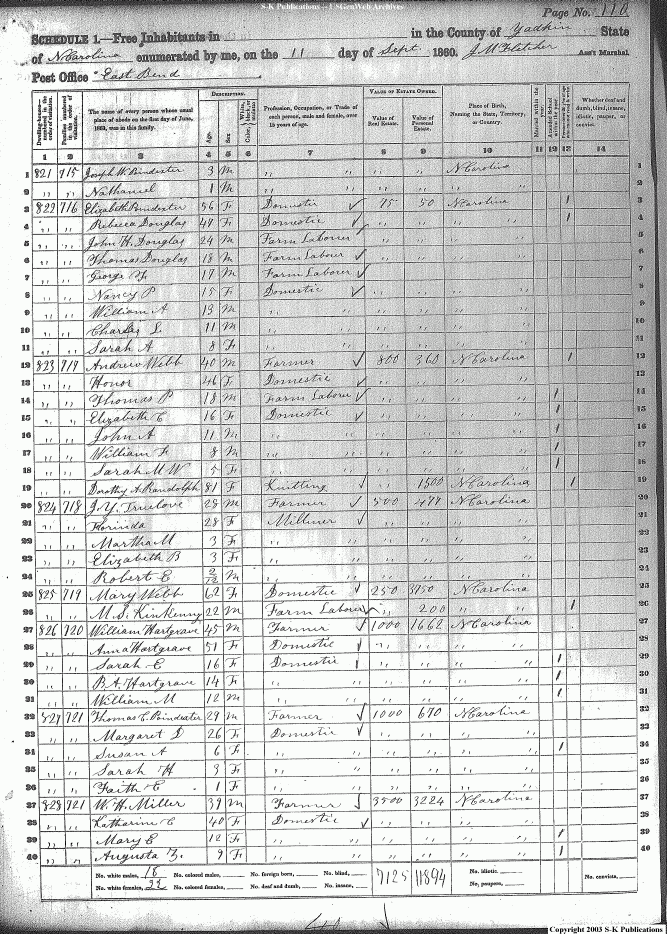 S-K Publications - USGenWeb Archives
Page No. 110
SCHEDULE 1.—Free Inhabitants in in the County of Yadkin State
of N Carolina enumerated by me, on the 11 day of Sept 1860. J. M. Fletcher Ass't Marshal.
Post Office East Bend
DESCRIPTION. VALUE OF ESTATE OWNED.
The name of every person whose usual place of abode on the first day of June, 1860, was in this family. Age. Sex Profession, Occupation, or Trade of each person, male and female, over 15 years of age. Value of Real Estate. Value of Personal Estate. Place of Birth, Naming the State, Territory, or Country. Married within the year. Whether deaf and dumb, blind, insane, idiotic, pauper, or convict.
1 2 3 4 5 6 7 8 9 10 11 12 13 14
1 821 715 Joseph W. Poindexter 3 M " " " " N Carolina 1
2 " " Nathaniel 1 M " " " " " " 2
3 822 716 Elizabeth Poindexter 56 F Domestic ✓ 75 50 N Carolina / 3
4 " " Rebecca Douglas 47 F Domestic ✓ " " " " / 4
5 " " John H. Douglas 24 M Farm Labourer " " " " 5
6 " " Thomas Douglas 18 M Farm Labourer ✓ " " " " 6
7 " " George F 17 M Farm Labourer ✓ " " " " 7
8 " " Nancy P 15 F Domestic ✓ " " " " 8
9 " " William A 13 M " " " " " " 9
10 " " Charles L 11 M " " " " " " 10
11 " " Sarah A 8 F " " " " " " 11
12 823 717 Andrew Webb 40 M Farmer ✓ 800 360 N Carolina / 12
13 " " Honor 46 F Domestic ✓ " " " " 13
14 " " Thomas P 18 M Farm Laborer ✓ " " " " / 14
15 " " Elizabeth C 16 F Domestic ✓ " " " " / 15
16 " " John A 11 M " " " " " " / 16
17 " " William F 8 M " " " " " " / 17
18 " " Sarah M W 5 F " " " " " " / 18
19 " " Dorothy A Randolph 81 F Knitting ✓ " 1500 N Carolina / 19
20 824 718 J. Y. Truelove 28 M Farmer ✓ 500 477 N Carolina 20
21 " " Florinda 28 F Milliner ✓ " " " " 21
22 " " Martha M 3 F " " " " " " 22
23 " " Elizabeth B 3 F " " " " " " 23
24 " " Robert E 2/12 M " " " " " " 24
25 825 719 Mary Webb 62 F Domestic ✓ 250 3750 N Carolina 25
26 " " M. S. Kinkenny 22 M Farm Labour ✓ " 200 " " / 26
27 826 720 William Hartgrave 45 M Farmer ✓ 1000 1662 N Carolina 27
28 " " Anna Hartgrave 51 F Domestic ✓ " " " " 28
29 " " Sarah E 16 F Domestic ✓ " " " " / 29
30 " " B. A. Hartgrave 14 F " " " " " " / 30
31 " " William M 12 M " " " " " " / 31
32 827 721 Thomas C. Poindexter 29 M Farmer ✓ 1000 670 N Carolina 32
33 " " Margaret D 26 F Domestic ✓ " " " " 33
34 " " Susan A 6 F " " " " " " / 34
35 " " Sarah H 3 F " " " " " " 35
36 " " Faith E 1 F " " " " " " 36
37 828 721 W. H. Miller 39 M Farmer ✓ 3500 3224 N Carolina 37
38 " " Katharine C 40 F Domestic ✓ " " " " 38
39 " " Mary E 12 F " " " " " " / 39
40 " " Augusta Z. 9 F " " " " " " / 40
No. white males, 18 No. colored males, No. foreign born, No. blind, 7125 11894 No. idiotic, No. convicts,
No. white females, 22 No. colored females, No. deaf and dumb, No. insane, No. paupers,
40 ✓
Copyright 2003 S-K Publications